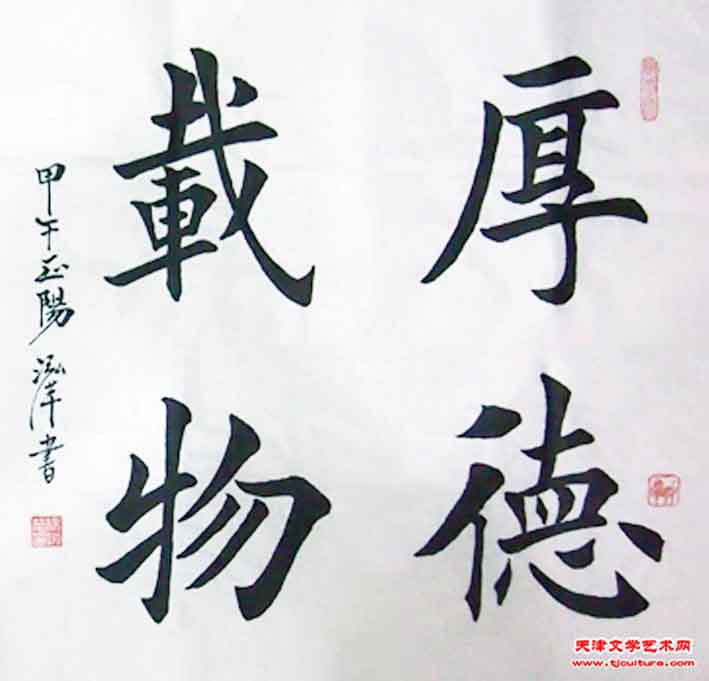 厚德
載物
甲午正陽 泓洋書
天津文学艺术网
www.tjculture.com